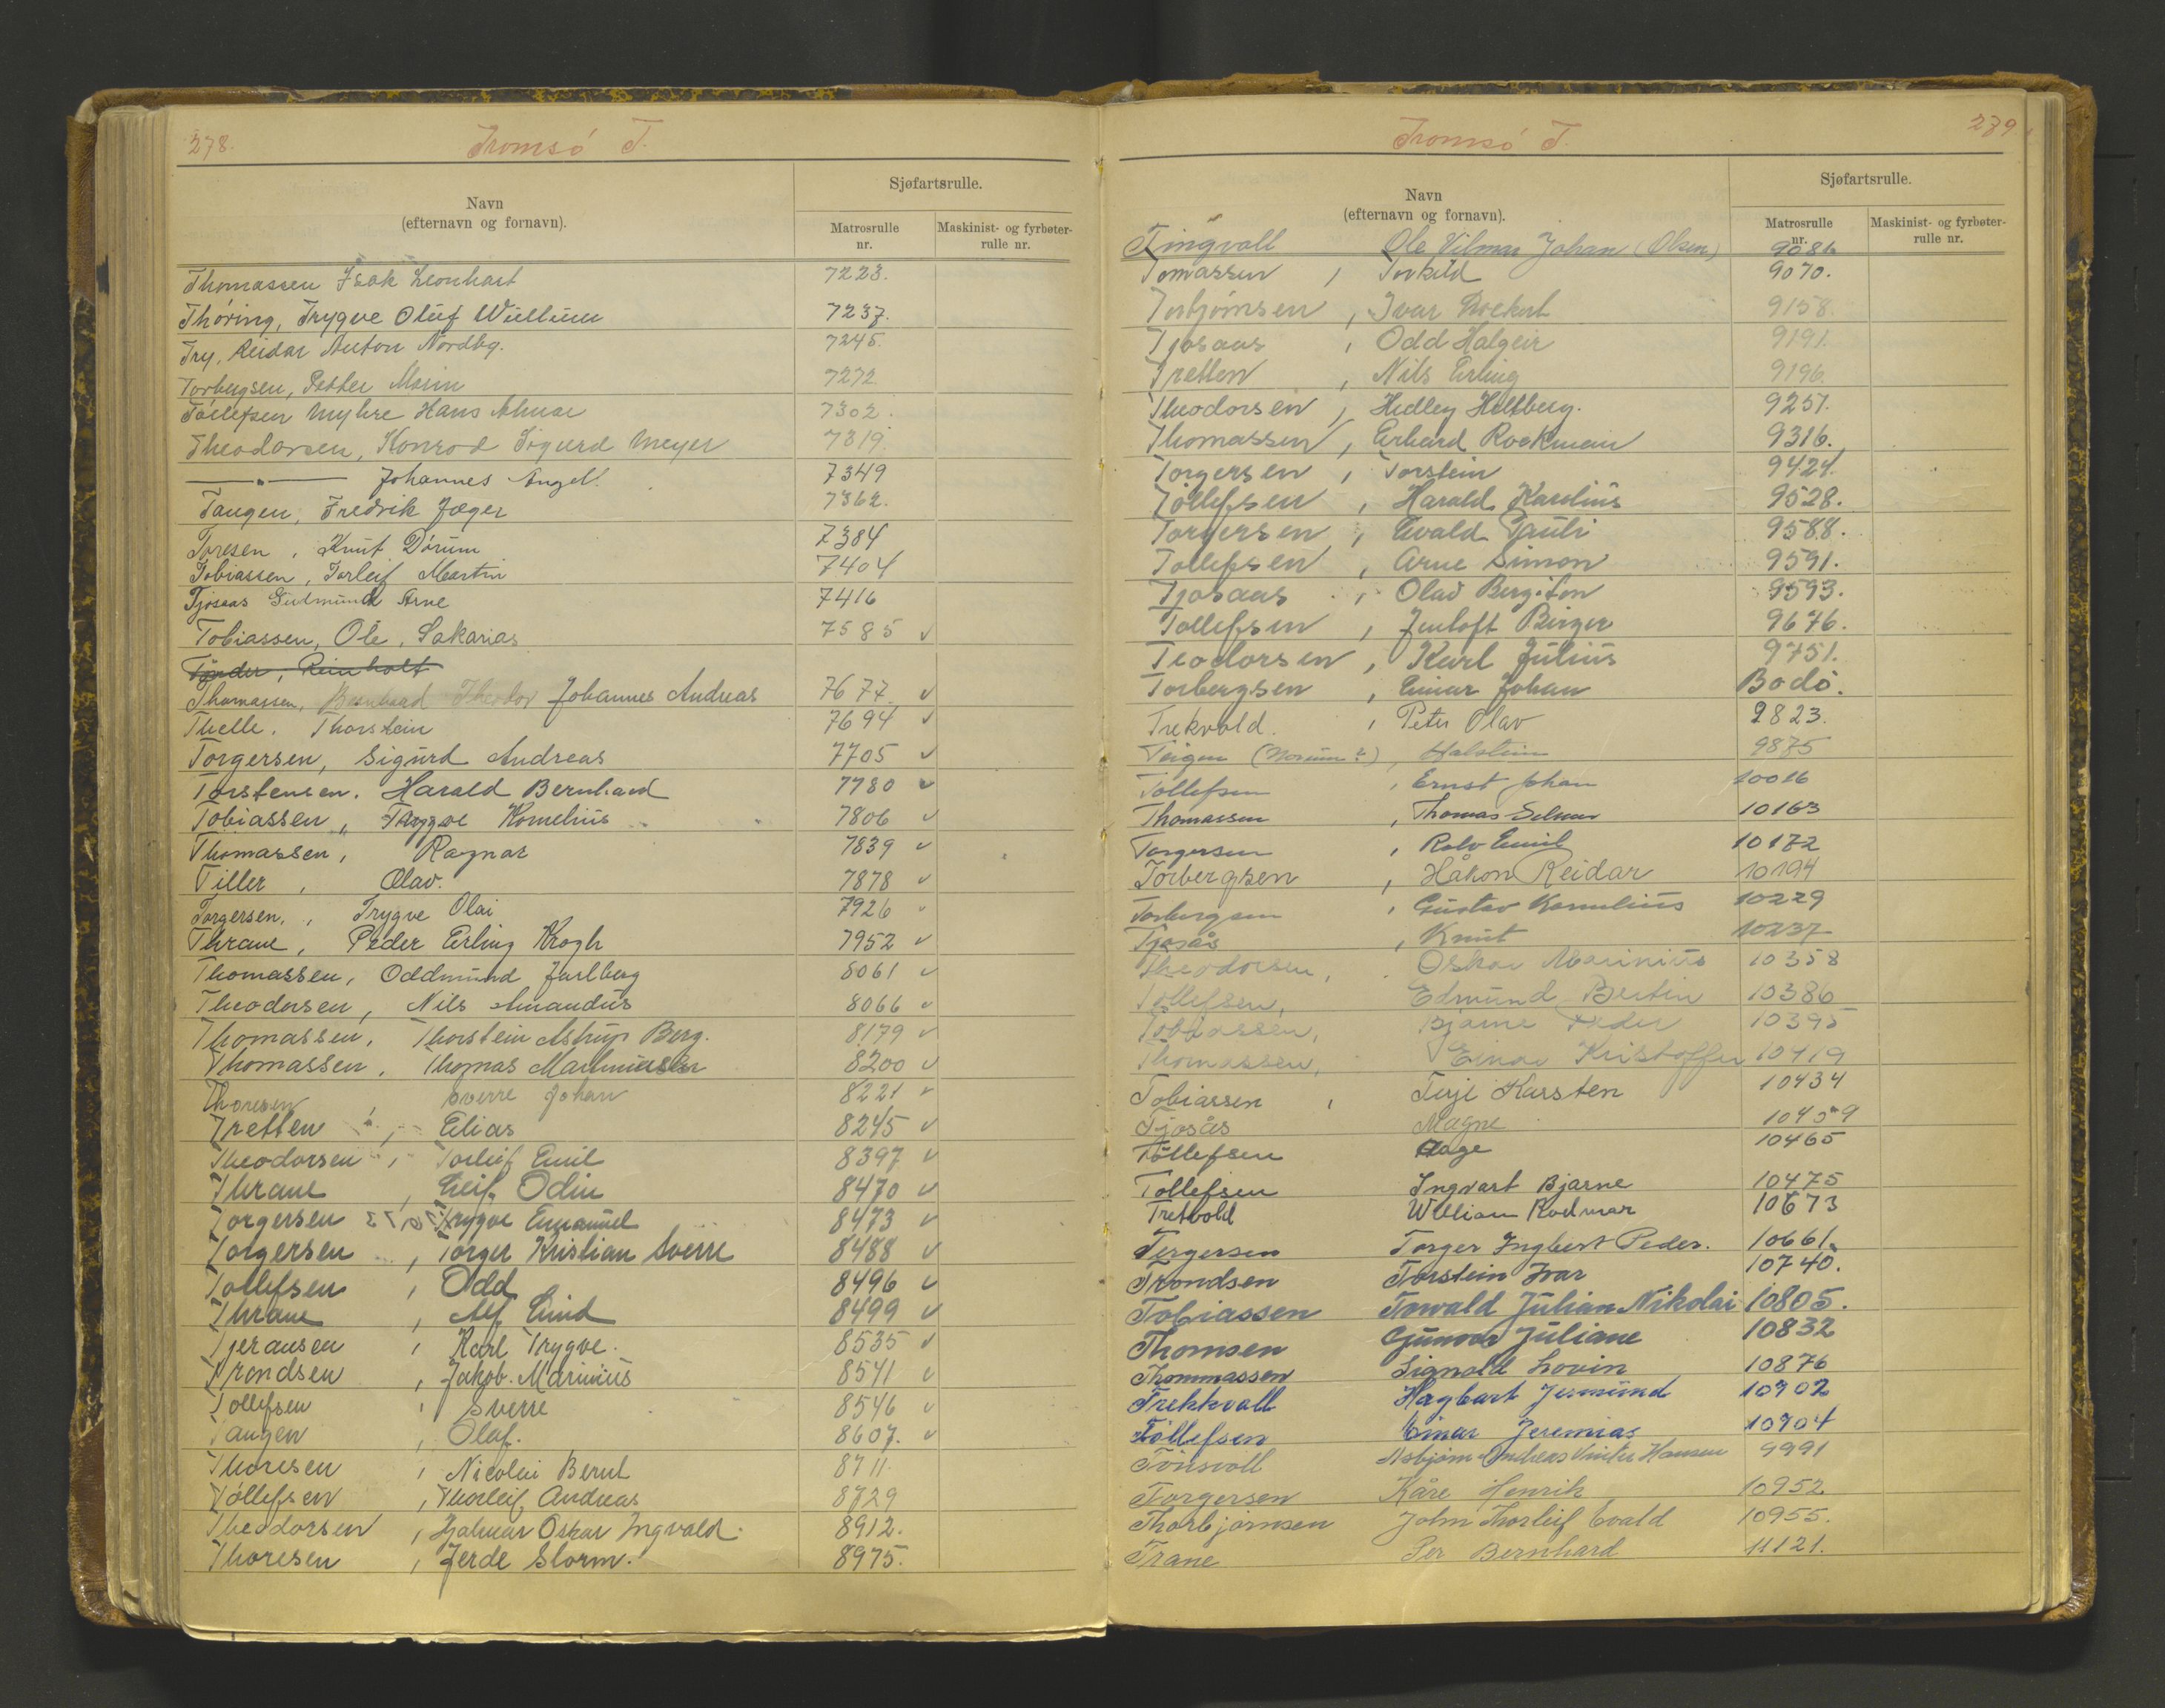 278.
Tromsø T.
Navn
(efternavn og fornavn).
Sjøfartsrulle.
Matrosrulle
nr.
Maskinist- og fyrbøter-
rulle nr.
Thomassen Isak Leonhart 7223.
Thøring, Trygve Oluf Willum 7237.
Try, Reidar Anton Nordbg. 7245.
Torbergsen, Petter Marin 7272.
Tollefsen Myhre Hans Almar 7302.
Theodorsen, Konrad Sigurd Meyer 7319.
—"— Johannes Angel. 7349
Tangen, Fredrik Jæger 7362.
Toresen, Knut Dørum 7384
Tobiassen, Torleif Martin 7404
Tjosaas Gudmund Arne 7416
Tobiassen, Ole, Sakarias 7585 ✓
Tønder, Reinholt
Thomassen, Bernhard Theodor Johannes Andreas 7677 ✓
Thelle, Thorstein 7694 ✓
Torgersen, Sigurd Andreas 7705 ✓
Torstensen, Harald Bernhard 7780 ✓
Tobiassen, Trygve Kornelius 7806 ✓
Thomassen, Ragnar 7839 ✓
Tiller, Olav. 7878 ✓
Torgersen, Trygve Olai 7926 ✓
Thrane, Peder Erling Krogh 7952 ✓
Thomassen, Oddmund Jarlberg 8061 ✓
Theodorsen, Nils Amandus 8066 ✓
Thomassen, Thorstein Astrup Berg. 8179 ✓
Thomassen, Thomas 8200 ✓
Thoresen, Sverre Johan 8221 ✓
Tretten, Elias 8245 ✓
Theodorsen, Torleif Emil 8397 ✓
Thrane, Leif Odin 8470 ✓
Torgersen Trygve Emanuel 8473 ✓
Torgersen, Torger Kristian Sverre 8488 ✓
Tollefsen, Odd 8496 ✓
Thrane, Alf Emid 8499 ✓
Tjeransen, Karl Trygve. 8535 ✓
Trondsen, Jakob Marinius 8541 ✓
Tollefsen, Sverre 8546 ✓
Tangen, Olaf. 8607. ✓
Thoresen, Nicolai Bernt 8711.
Tollefsen, Thorleif Andreas 8729
Theodorsen, Hjalmar Oskar Ingvald. 8912.
Thoresen, Jerde Storm. 8975.
279
Tromsø T.
Navn
(efternavn og fornavn).
Sjøfartsrulle.
Matrosrulle
nr.
Maskinist- og fyrbøter-
rulle nr.
Tingvoll Ole Vilmar Johan (Olsen) 9086
Tomassen, Torkild 9070.
Torbjørnsen, Ivar 9158.
Tjosaas, Odd Halgeir 9191.
Tretten, Nils Erling 9196.
Theodorsen, Hedley Holtberg. 9257.
Thomassen, Erhard Rockman 9316.
Torgersen, Torstein 9424.
Tollefsen, Harald Karolius 9528.
Torgersen, Evald Pauli 9588.
Tollefsen, Arne Simon 9591.
Tjosaas, Olav Bergiton 9593.
Tollefsen, Jenloft Birger 9676.
Teodorsen, Karl Julius 9751.
Torbergsen, Einar Johan Bodø.
Trekvold., Peter Olav 9823.
Teigen (Norum?), Halstein 9875
Tollefsen, Ernst Johan 10016
Thomassen, Thomas Selmer 10163
Torgersen, Rolv Emil 10172
Torbergsen, Håkon Reidar 10194
Torbergsen, Gustav Kornelius 10229
Tjosås, Knut 10237
Theodorsen, Oskar Marinius 10358
Tollefsen, Edmund Bertin 10386
Tobiassen, Bjarne Peder 10395
Thomassen, Einar Kristoffer 10419
Tobiassen, Terje Karsten 10434
Tjosås Magne 10459
Tollefsen Aage 10465
Tollefsen Ingvart Bjarne 10475
Tretvold William Rodmar 10673
Tergersen Torger Ingbert Peder. 10661.
Trondsen Torstein Ivar 10740.
Tobiassen Towald Julian Nikolai 10805.
Thomsen Gunvor Juliane 10832
Thommassen Signald Lovin 10876
Trekkvoll Hagbart Jermund 10902
Tollefsen Einar Jeremias 10904
Tønsvoll Asbjørn Andreas Vinter Hansen 9991
Torgersen Kåre Henrik 10952
Thorbjørnsen John Thorleif Evald 10955.
Trane Per Bernhard 11121.